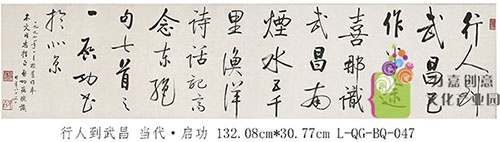 行人到
武昌已
作
喜那識
武昌南
煙水五千
里漁洋
詩話記高
念東絕
句七首之
一啟功書
於北京
嘉创意
文化产业园
行人到武昌 当代·启功 132.08cm*30.77cm L-QG-BQ-047